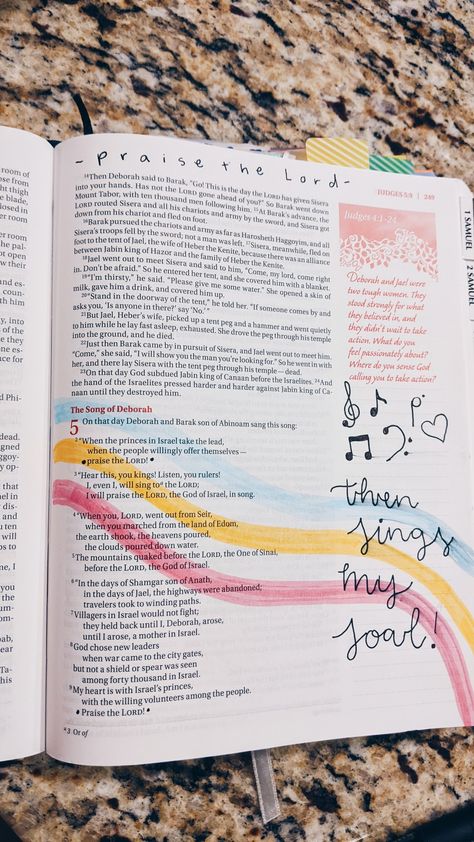 - praise the Lord -
JUDGES 5:9 | 249
¹⁴Then Deborah said to Barak, “Go! This is the day the LORD has given Sisera
into your hands. Has not the LORD gone ahead of you?” So Barak went down
Mount Tabor, with ten thousand men following him. ¹⁵At Barak’s advance, the
LORD routed Sisera and all his chariots and army by the sword, and Sisera got
down from his chariot and fled on foot.
¹⁶Barak pursued the chariots and army as far as Harosheth Haggoyim, and all
Sisera’s troops fell by the sword; not a man was left. ¹⁷Sisera, meanwhile, fled on
foot to the tent of Jael, the wife of Heber the Kenite, because there was an alliance
between Jabin king of Hazor and the family of Heber the Kenite.
¹⁸Jael went out to meet Sisera and said to him, “Come, my lord, come right
in. Don’t be afraid.” So he entered her tent, and she covered him with a blanket.
¹⁹“I’m thirsty,” he said. “Please give me some water.” She opened a skin of
milk, gave him a drink, and covered him up.
²⁰“Stand in the doorway of the tent,” he told her. “If someone comes by and
asks you, ‘Is anyone in there?’ say ‘No.’”
²¹But Jael, Heber’s wife, picked up a tent peg and a hammer and went quietly
to him while he lay fast asleep, exhausted. She drove the peg through his temple
into the ground, and he died.
²²Just then Barak came by in pursuit of Sisera, and Jael went out to meet him.
“Come,” she said, “I will show you the man you’re looking for.” So he went in with
her, and there lay Sisera with the tent peg through his temple—dead.
²³On that day God subdued Jabin king of Canaan before the Israelites. ²⁴And
the hand of the Israelites pressed harder and harder against Jabin king of Ca-
naan until they destroyed him.
The Song of Deborah
5 On that day Deborah and Barak son of Abinoam sang this song:
²“When the princes in Israel take the lead,
when the people willingly offer themselves—
praise the LORD!
³“Hear this, you kings! Listen, you rulers!
I, even I, will sing toᵃ the LORD;
I will praise the LORD, the God of Israel, in song.
⁴“When you, LORD, went out from Seir,
when you marched from the land of Edom,
the earth shook, the heavens poured,
the clouds poured down water.
⁵The mountains quaked before the LORD, the One of Sinai,
before the LORD, the God of Israel.
⁶“In the days of Shamgar son of Anath,
in the days of Jael, the highways were abandoned;
travelers took to winding paths.
⁷Villagers in Israel would not fight;
they held back until I, Deborah, arose,
until I arose, a mother in Israel.
⁸God chose new leaders
when war came to the city gates,
but not a shield or spear was seen
among forty thousand in Israel.
⁹My heart is with Israel’s princes,
with the willing volunteers among the people.
Praise the LORD!
ᵃ3 Or of
Judges 4:1-24
Deborah and Jael were
two tough women. They
stood strongly for what
they believed in, and
they didn’t wait to take
action. What do you
feel passionately about?
Where do you sense God
calling you to take action?
then
sings
my
soul!
1 SAMUEL
2 SAMUEL